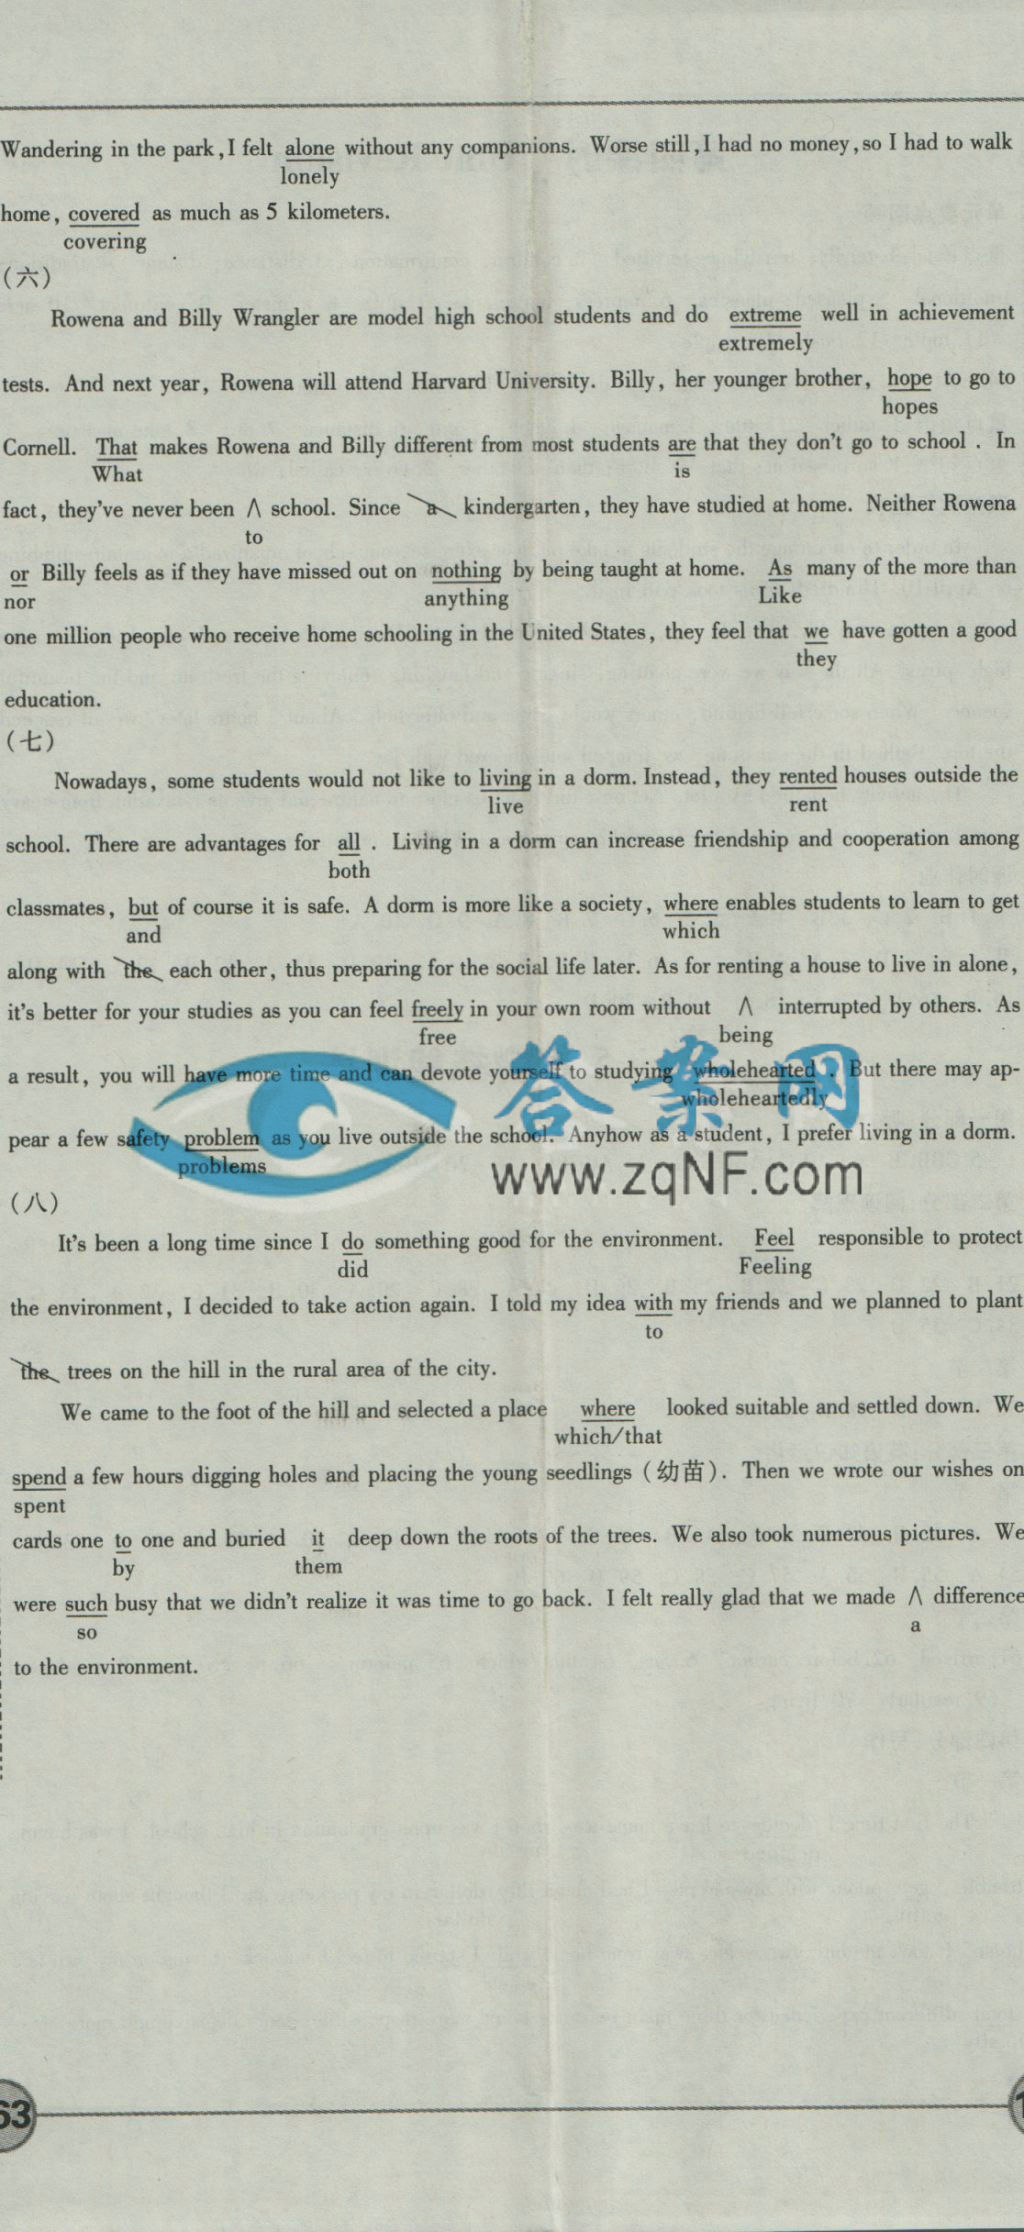 Wandering in the park, I felt alone without any companions. Worse still, I had no money, so I had to walk
lonely
home, covered as much as 5 kilometers.
covering
(六)
Rowena and Billy Wrangler are model high school students and do extreme well in achievement
extremely
tests. And next year, Rowena will attend Harvard University. Billy, her younger brother, hope to go to
hopes
Cornell. That makes Rowena and Billy different from most students are that they don't go to school. In
What is
fact, they've never been ∧ school. Since a kindergarten, they have studied at home. Neither Rowena
to
or Billy feels as if they have missed out on nothing by being taught at home. As many of the more than
nor anything Like
one million people who receive home schooling in the United States, they feel that we have gotten a good
they
education.
(七)
Nowadays, some students would not like to living in a dorm. Instead, they rented houses outside the
live rent
school. There are advantages for all. Living in a dorm can increase friendship and cooperation among
both
classmates, but of course it is safe. A dorm is more like a society, where enables students to learn to get
and which
along with the each other, thus preparing for the social life later. As for renting a house to live in alone,
it's better for your studies as you can feel freely in your own room without ∧ interrupted by others. As
free being
a result, you will have more time and can devote yourself to studying wholehearted. But there may ap-
wholeheartedly
pear a few safety problem as you live outside the school. Anyhow as a student, I prefer living in a dorm.
problems
答案网
www.zqNF.com
(八)
It's been a long time since I do something good for the environment. Feel responsible to protect
did Feeling
the environment, I decided to take action again. I told my idea with my friends and we planned to plant
to
the trees on the hill in the rural area of the city.
We came to the foot of the hill and selected a place where looked suitable and settled down. We
which/that
spend a few hours digging holes and placing the young seedlings (幼苗). Then we wrote our wishes on
spent
cards one to one and buried it deep down the roots of the trees. We also took numerous pictures. We
by them
were such busy that we didn't realize it was time to go back. I felt really glad that we made ∧ difference
so a
to the environment.
63